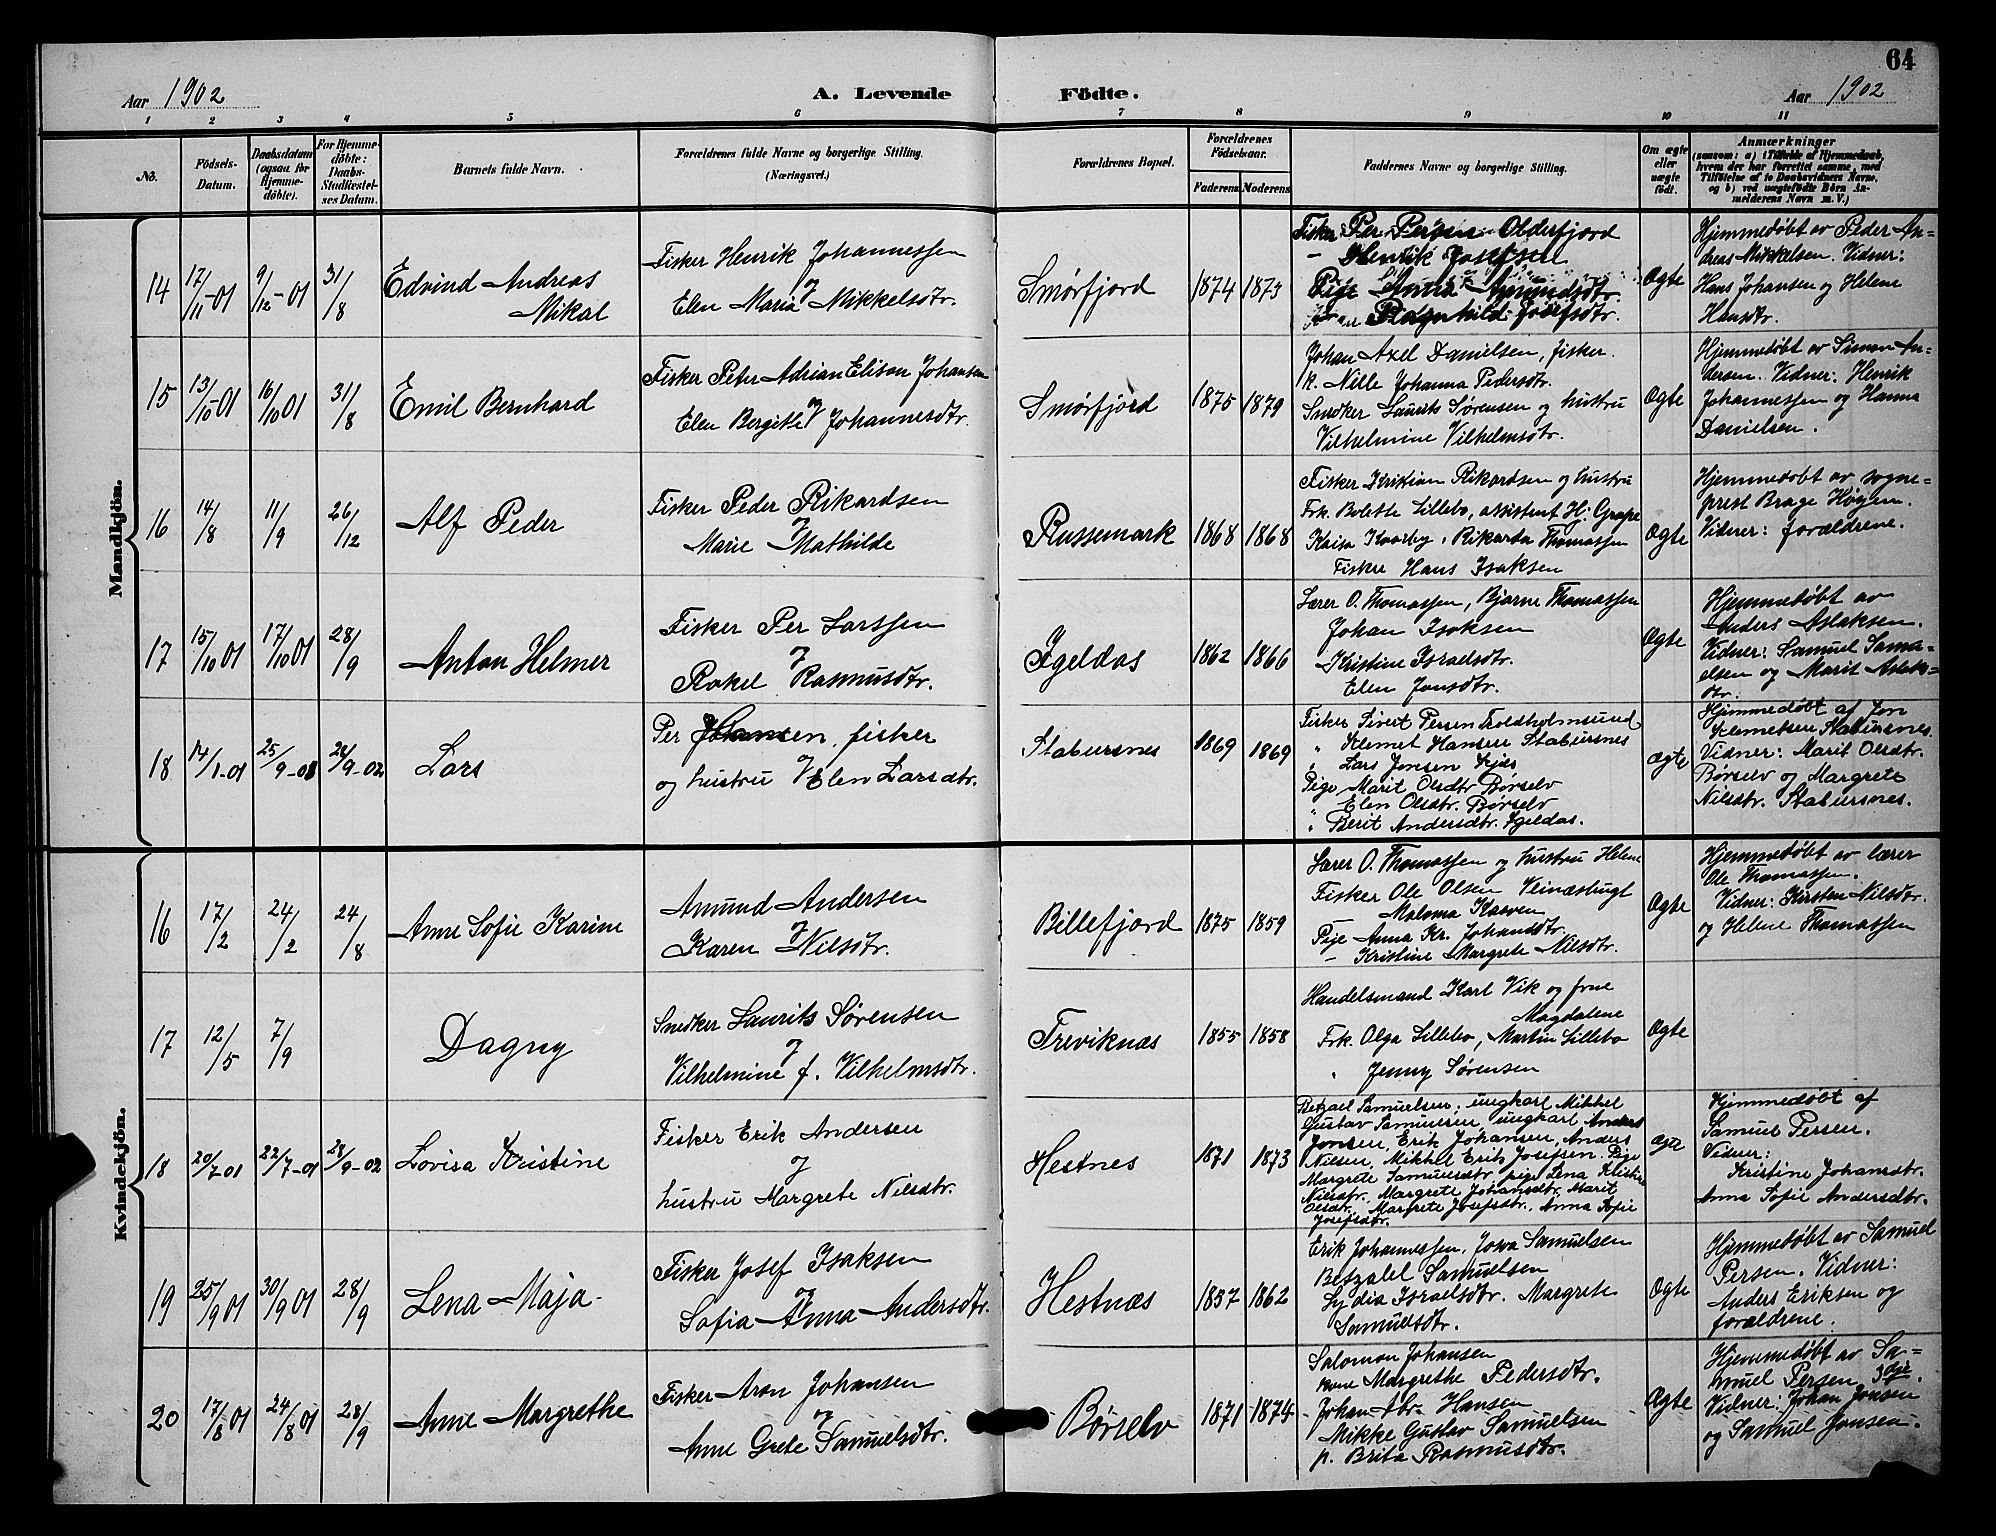 64
Aar 1902
A. Levende Födte.
Aar 1902
1 2 3 4 5 6 7 8 9 10 11
No.
Födsels-
Datum.
Daabsdatum
(ogsaa for
Hjemme-
döbte).
For Hjemme-
döbte:
Daabs-
Stadfæstel-
ses Datum.
Barnets fulde Navn.
Forældrenes fulde Navne og borgerlige Stilling.
(Næringsvei.)
Forældrenes Bopæl.
Forældrenes
Födselsaar.
Faderens
Moderens
Faddernes Navne og borgerlige Stilling.
Om ægte
eller
uægte
født.
Anmærkninger
(saasom: a) i Tilfælde af Hjemmedaab,
hvem der har forrettet samme, med
Tilföielse af to Daabsvidners Navne,
og b) ved uægtefödte Börn An-
melderens Navn m. V.)
Mandkjön.
14
17/11-01
9/12-01
31/8
Edvind Andreas
Mikal
Fisker Henrik Johannessen
og
Elen Maria Mikkelsdtr.
Smørfjord
1874
1873
Fisker Per Persen Olderfjord
– Henrik Josefsen
Pige Anna Amundsdtr.
Ragnhild Josefsdtr.
Ægte
Hjemmedøbt av Peder An=
dreas Mikkelsen. Vidner:
Hans Johansen og Helene
Hansdtr.
15
13/10-01
16/10 01
31/8
Emil Bernhard
Fisker Peter Adrian Elison Johansen
og
Elen Bergitte Johannesdtr.
Smørfjord
1875
1879
Johan Axel Danielsen, fisker.
k. Nille Johanna Pedersdtr.
Snedker Laurits Sørensen og hustru
Vilhelmine Vilhelmsdtr.
Ægte
Hjemmedøbt av Simon An=
dersen. Vidner: Henrik
Johannessen og Hanna
Danielsen.
16
14/8
11/9
26/12
Alf Peder
Fisker Peder Rikardsen
og
Marie Mathilde
Russemark
1868
1868
Fisker Kristian Rikardsen og hustru
Frk. Bolette Lillebo, assistent Hj. Grape
Kaisa Kaarby, Rikarda Thomassen
Fisker Hans Isaksen
Ægte
Hjemmedøbt av sogne=
prest Brage Høyem.
Vidner: forældrene.
17
15/10 01
17/10 01
28/9
Anton Helmer
Fisker Per Larssen
og
Rakel Rasmusdtr.
Igeldas
1862
1866
Lærer O. Thomassen, Bjarne Thomassen
Johan Isaksen
Kristine Israelsdtr.
Elen Jonsdtr.
Ægte
Hjemmedøbt av
Anders Aslaksen.
Vidner: Samuel Samu=
elsen og Marit Aslaks=
dtr.
18
14/1-01
25/9-01
28/9-02
Lars
Per Hansen, fisker
og hustru Elen Larsdtr.
Stabursnes
1869
1869
Fisker Sivert Persen Troldholmsund
" Klemet Hansen Stabursnes
" Lars Jonsen Kjæs
Pige Marit Olsdtr Børselv
" Elen Olsdtr. Børselv
" Berit Andersdtr. Igeldas.
Ægte
Hjemmedøbt af Jon
Klemetsen Stabursnes.
Vidner: Marit Olsdtr.
Børselv og Margrete
Nilsdtr. Stabursnes.
Kvindekjön.
16
17/2
24/2
24/8
Anne Sofie Karine
Amund Andersen
og
Karen Nilsdtr.
Billefjord
1875
1859
Lærer O. Thomassen og hustru Helene
Fisker Ole Olsen Veinæsbugt
Maloma Kaaven
Pige Anna Kr. Johansdtr.
– Kristine Margrete Nilsdtr.
Ægte
Hjemmedøbt av lærer
Ole Thomassen.
Vidner: Kirsten Nilsdtr.
og Helene Thomassen
17
12/5
7/9
Dagny
Snedker Laurits Sørensen
og
Vilhelmine f. Vilhelmsdtr.
Treviknæs
1855
1858
Handelsmand Karl Vik og frue
Magdalene
Frk. Olga Lillebo, Martin Lillebo
" Jenny Sørensen
Ægte
18
20/7 01
22/7-01
28/9-02
Lovisa Kristine
Fisker Erik Andersen
og
hustru Margrete Nilsdtr.
Hestnes
1871
1873
Betzael Samuelsen, ungkarl Mikkel
Gustav Samuelsen, ungkarl Anders
Jonsen, Erik Johansen, Anders
Nilsen, Mikkel Erik Josefsen. Pige
Margrete Samuelsdtr, pige Lena Kristine
Nilsdtr., Margrete Johansdtr. Marit
Olsdtr, Margrete Josefsdtr., Anna Sofie
Josefsdtr.
Ægte
Hjemmedøbt af
Samuel Persen.
Vidner:
Kristine Johansdtr.
Anna Sofie Andersdtr.
19
25/9 01
30/9 01
28/9
Lena Maja
Fisker Josef Isaksen
og
Sofia Anna Andersdtr.
Hestnæs
1857
1862
Erik Johannessen, Josva Samuelsen
Betzalel Samuelsen
Lydia Israelsdtr. Margrete
Samuelsdtr.
Ægte
Hjemmedøbt av Samuel
Persen. Vidner:
Anders Eriksen og
forældrene.
20
17/8 01
24/8 01
28/9
Anne Margrethe
Fisker Aron Johansen
og
Anne Grete Samuelsdtr.
Børselv
1871
1874
Salomon Johansen
kone Margrethe Pedersdtr.
Johan Abr. Hansen
Mikke Gustav Samuelsen
p. Brita Rasmusdtr.
Ægte
Hjemmedøbt av Sa=
muel Persen
Vidner: Johan Jonsen
og Samuel Jonsen.